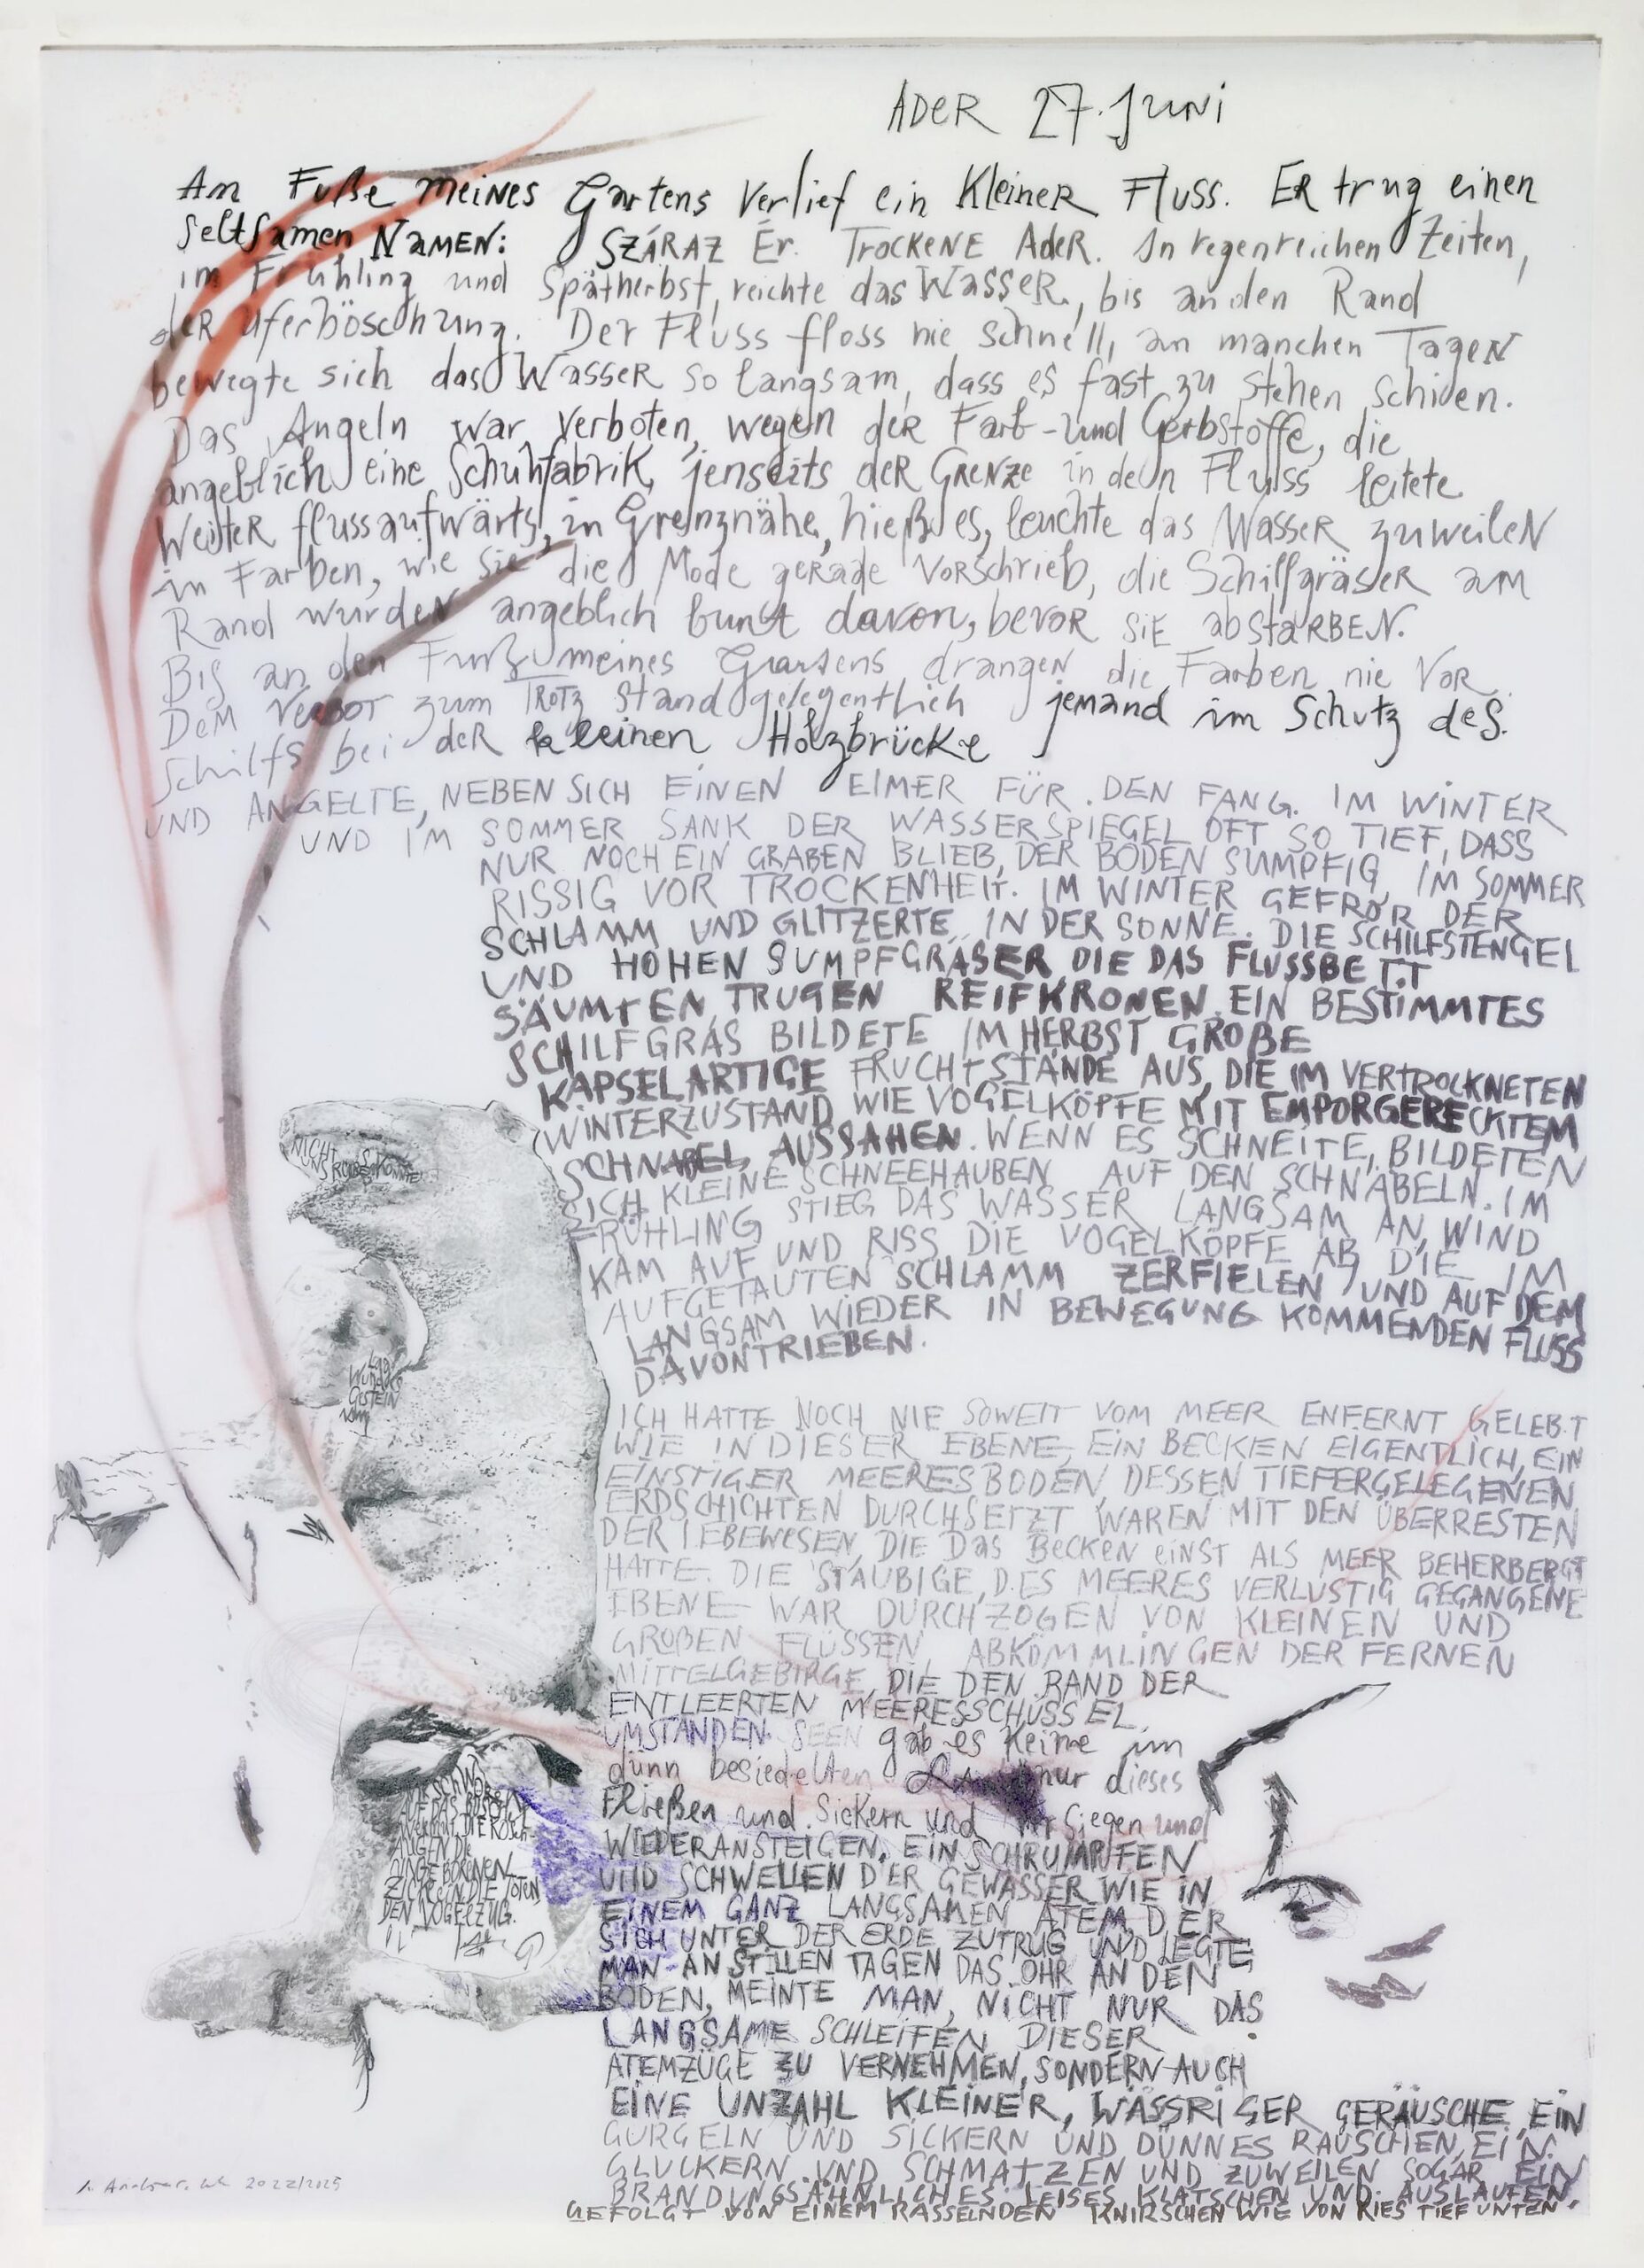 ADER 27. JUNI
Am Fuße meines Gartens verlief ein Kleiner Fluss. Er trug einen
seltsamen Namen: SZÁRAZ Ér. Trockene Ader. In regenreichen Zeiten,
im Frühling und Spätherbst, reichte das Wasser, bis an den Rand
der Uferböschung. Der Fluss floss nie schnell, an manchen Tagen
bewegte sich das Wasser so langsam, dass es fast zu stehen schien.
Das Angeln war verboten, wegen der Farb- und Gerbstoffe, die
angeblich eine Schuhfabrik, jenseits der Grenze in den Fluss leitete.
Weiter flussaufwärts, in Grenznähe, hieß es, leuchte das Wasser zuweilen
in Farben, wie sie die Mode gerade vorschrieb, die Schilfgräser am
Rand wurden angeblich bunt davon, bevor sie abstarben.
Bis an den Fuß meines Gartens drangen die Farben nie vor.
Dem Verbot zum Trotz stand gelegentlich jemand im Schutz des
Schilfs bei der kleinen Holzbrücke
UND ANGELTE, NEBEN SICH EINEN EIMER FÜR DEN FANG. IM WINTER
UND IM SOMMER SANK DER WASSERSPIEGEL OFT SO TIEF, DASS
NUR NOCH EIN GRABEN BLIEB, DER BODEN SUMPFIG, IM SOMMER
RISSIG VOR TROCKENHEIT. IM WINTER GEFROR DER
SCHLAMM UND GLITZERTE IN DER SONNE. DIE SCHILFSTENGEL
UND HOHEN SUMPFGRÄSER DIE DAS FLUSSBETT
SÄUMTEN, TRUGEN REIFKRONEN. EIN BESTIMMTES
SCHILFGRAS BILDETE IM HERBST GROßE
KAPSELARTIGE FRUCHTSTÄNDE AUS, DIE IM VERTROCKNETEN
WINTERZUSTAND WIE VOGELKÖPFE MIT EMPORGERECKTEM
SCHNABEL AUSSAHEN. WENN ES SCHNEITE, BILDETEN
SICH KLEINE SCHNEEHAUBEN AUF DEN SCHNÄBELN. IM
FRÜHLING STIEG DAS WASSER LANGSAM AN, WIND
KAM AUF UND RISS DIE VOGELKÖPFE AB, DIE IM
AUFGETAUTEN SCHLAMM ZERFIELEN UND AUF DEM
LANGSAM WIEDER IN BEWEGUNG KOMMENDEN FLUSS
DAVONTRIEBEN.
ICH HATTE NOCH NIE SOWEIT VOM MEER ENFERNT GELEBT
WIE IN DIESER EBENE, EIN BECKEN EIGENTLICH, EIN
EINSTIGER MEERESBODEN, DESSEN TIEFERGELEGENEN
ERDSCHICHTEN DURCHSETZT WAREN MIT DEN ÜBERRESTEN
DER LEBEWESEN, DIE DAS BECKEN EINST ALS MEER BEHERBERGT
HATTE. DIE STAUBIGE, DES MEERES VERLUSTIG GEGANGENE
EBENE WAR DURCHZOGEN VON KLEINEN UND
GROßEN FLÜSSEN, ABKÖMMLINGEN DER FERNEN
MITTELGEBIRGE, DIE DEN RAND DER
ENTLEERTEN MEERESSCHÜSSEL
UMSTANDEN. SEEN gab es keine im
dünn besiedelten nur dieses
Fließen und Sickern und Siegen und
WIEDERANSTEIGEN, EIN SCHRUMPFEN
UND SCHWELLEN DER GEWÄSSER WIE IN
EINEM GANZ LANGSAMEN ATEM, DER
SICH UNTER DER ERDE ZUTRUG UND LEGTE
MAN AN STILLEN TAGEN DAS OHR AN DEN
BODEN, MEINTE MAN, NICHT NUR DAS
LANGSAME SCHLEIFEN DIESER
ATEMZÜGE ZU VERNEHMEN, SONDERN AUCH
EINE UNZAHL KLEINER, WÄSSRIGER GERÄUSCHE, EIN
GURGELN UND SICKERN UND DÜNNES RAUSCHEN, EIN
GLUCKERN UND SCHMATZEN UND ZUWEILEN SOGAR EIN
BRANDUNGSÄHNLICHES LEISES KLATSCHEN UND AUSLAUFEN,
GEFOLGT VON EINEM RASSELNDEN KNIRSCHEN WIE VON KIES TIEF UNTEN
NICHT
UNS
GESTEIN
AUF DAS
DIE
UNGEBORENEN
DIE TOTEN
DEN VOGELZUG.
2022/2025